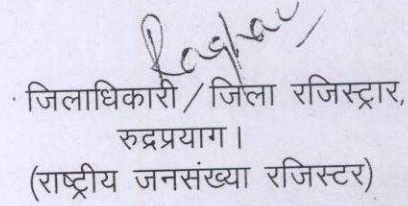 Raghav
जिलाधिकारी / जिला रजिस्ट्रार,
रुद्रप्रयाग।
(राष्ट्रीय जनसंख्या रजिस्टर)